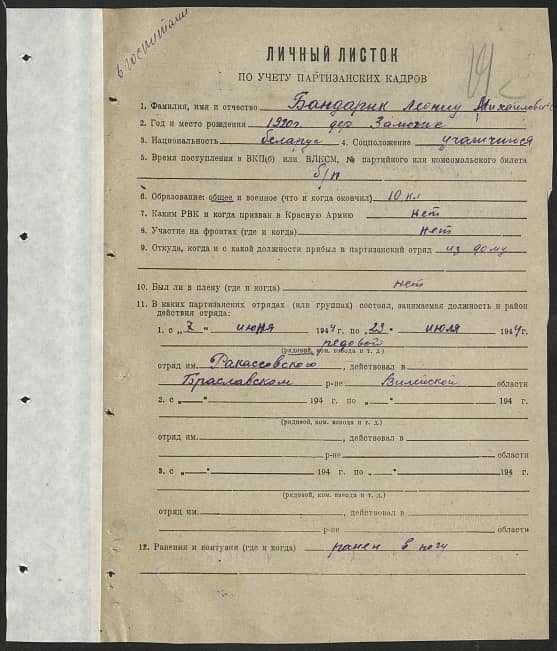 в госпитале
ЛИЧНЫЙ ЛИСТОК
ПО УЧЕТУ ПАРТИЗАНСКИХ КАДРОВ
1. Фамилия, имя и отчество Бандарик Леонид Михайлович
2. Год и место рождения 1920г. дер Замошье
3. Национальность беларус 4. Соцположение учащийся
5. Время поступления в ВКП(б) или ВЛКСМ, № партийного или комсомольского билета
б/п
6. Образование: общее и военное (что и когда окончил) 10 кл
7. Каким РВК и когда призван в Красную Армию нет
8. Участие на фронтах (где и когда) нет
9. Откуда, когда и с какой должности прибыл в партизанский отряд из дому
10. Был ли в плену (где и когда) нет
11. В каких партизанских отрядах (или группах) состоял, занимаемая должность и район
действия отряда:
1. с „7" июня 1944 г. по „23" июля 1944г.
редовой
(рядовой, ком. взвода и т. д.)
отряд им. Ракассовского, действовал в
Браславском р-не Вилейской области
2. с „ " 194 г. по „ " 194 г.
(рядовой, ком. взвода и т. д.)
отряд им. , действовал в
р-не области
3. с „ " 194 г. по „ " 194 г.
(рядовой, ком. взвода и т. д.)
отряд им. , действовал в
р-не области
12. Ранения и контузии (где и когда) ранен в ногу